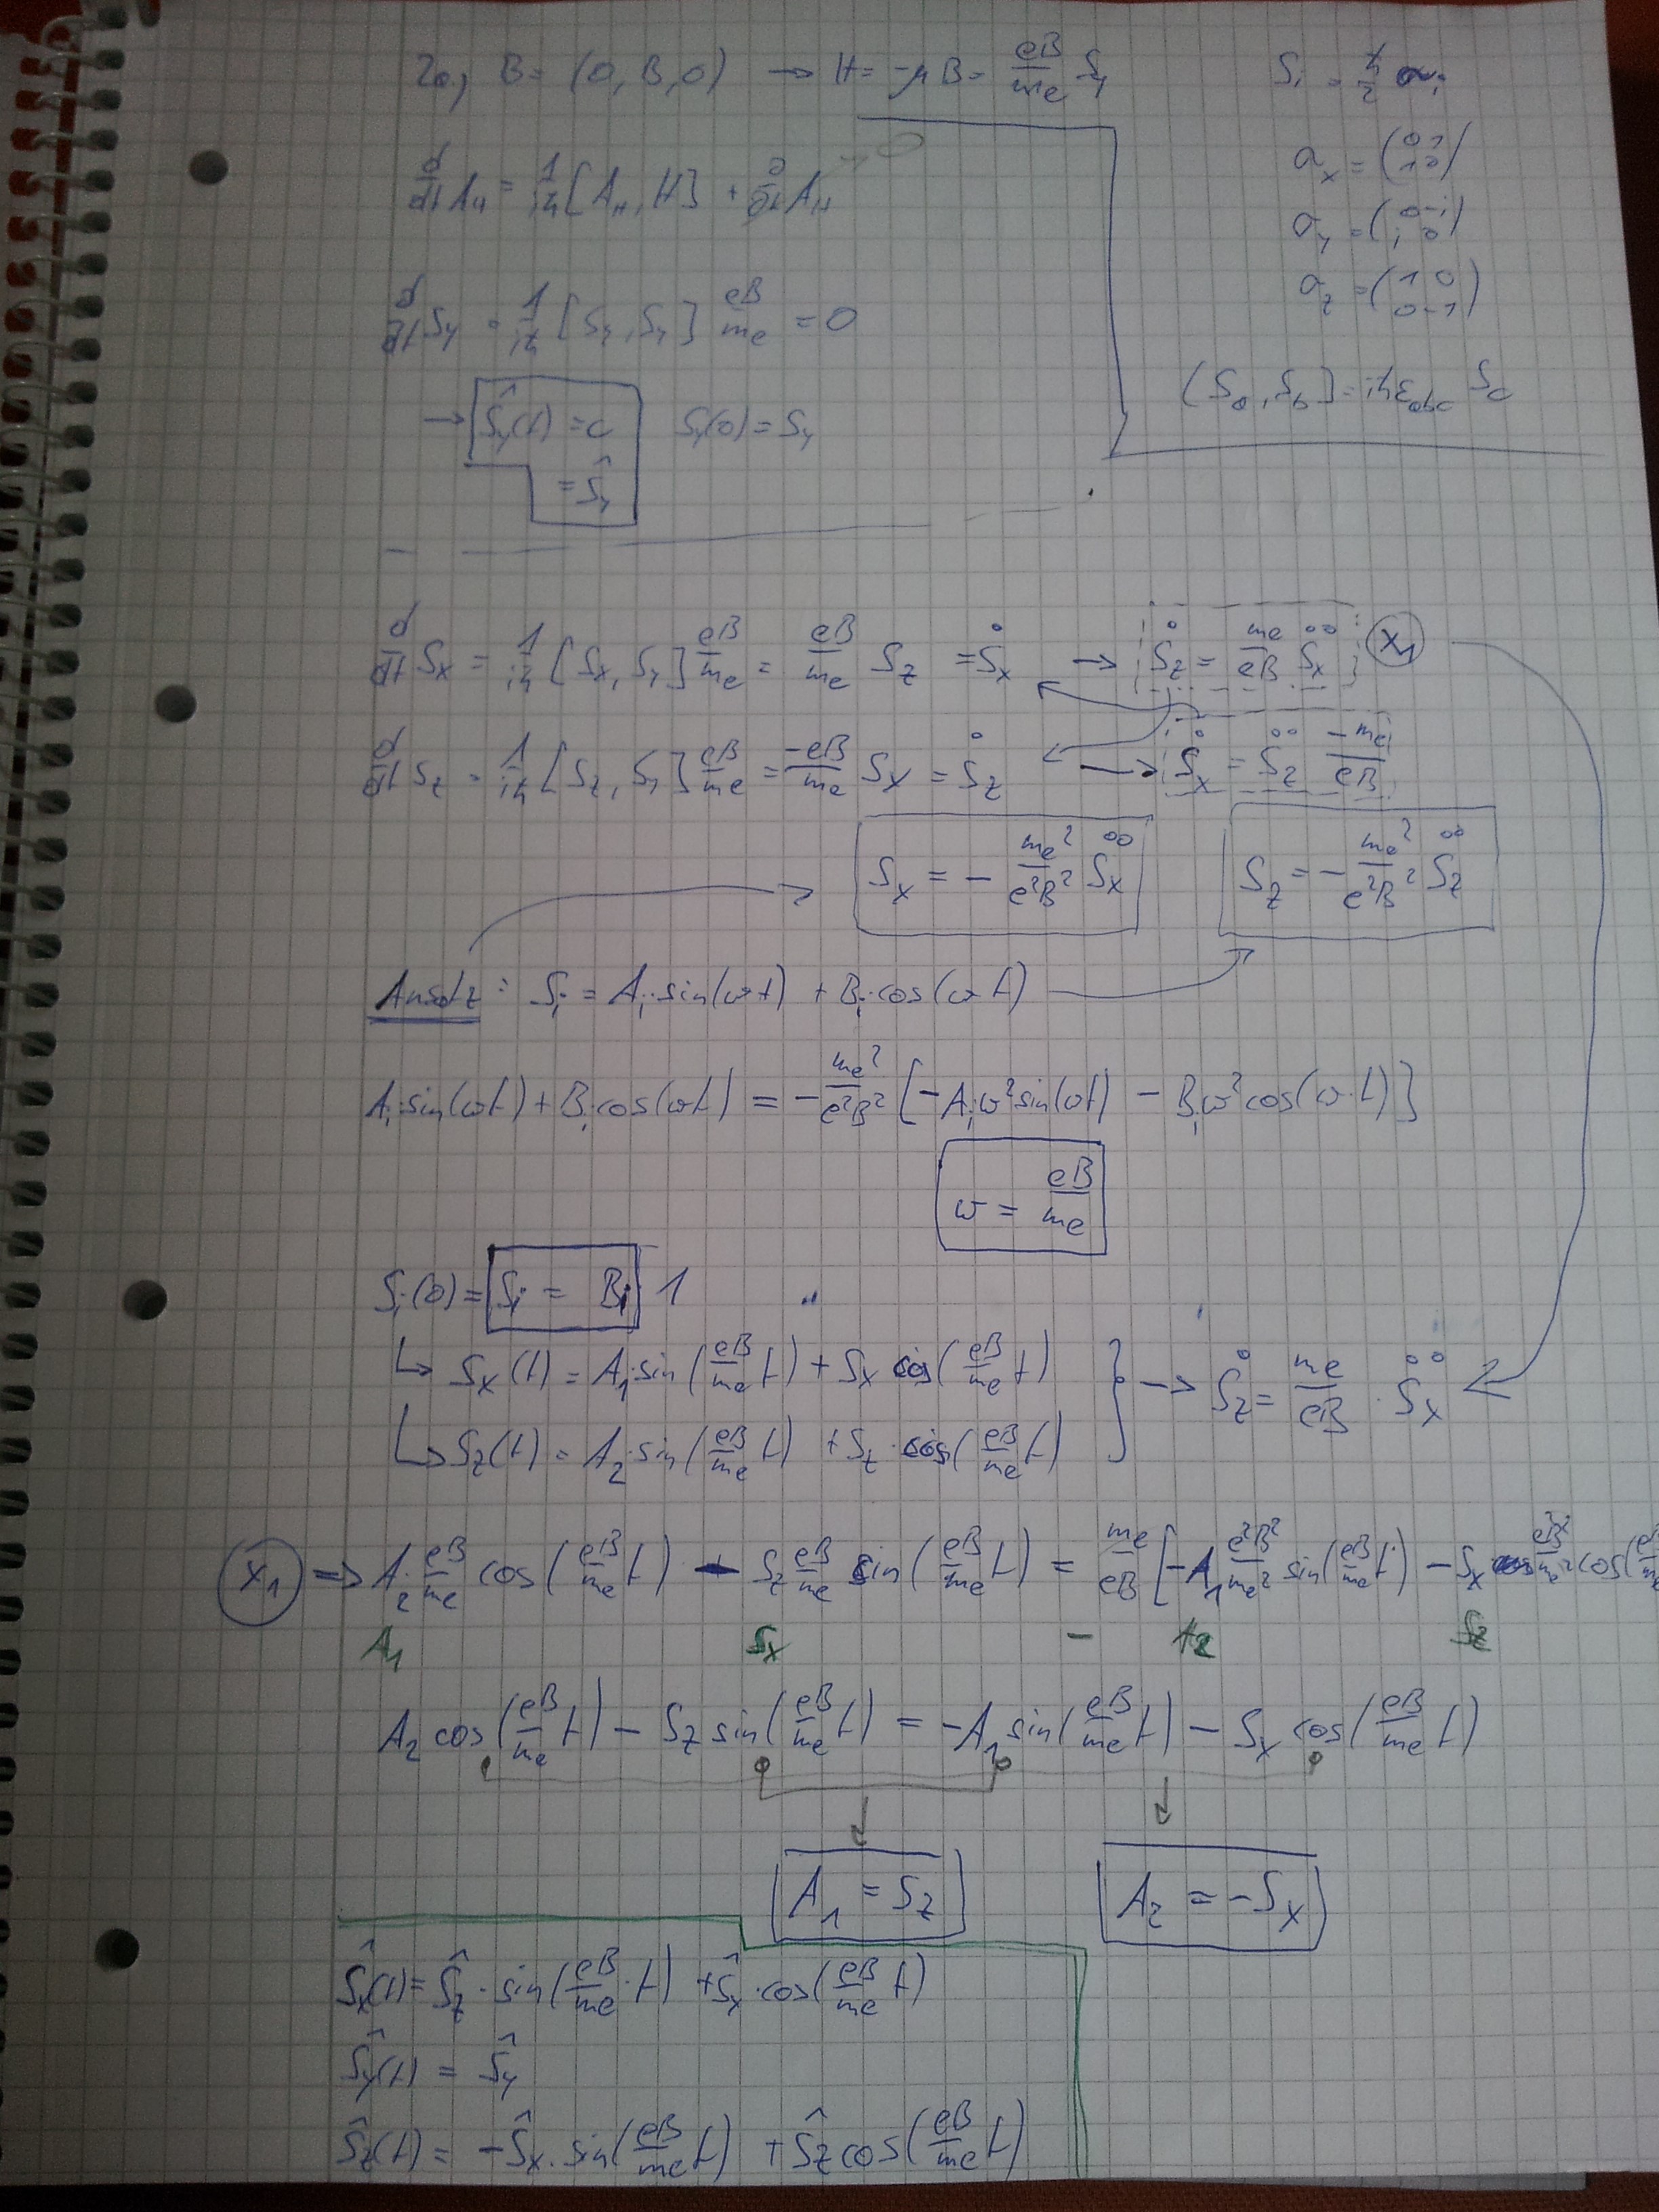 2a, B = (0, B, 0) → H = -μB = eB/m_e S_y
S_i = ħ/2 σ_i
σ_x = (0 1 / 1 0)
d/dt A_H = 1/iħ [A_H, H] + ∂/∂t A_H → 0
σ_y = (0 -i / i 0)
σ_z = (1 0 / 0 -1)
d/dt S_y = 1/iħ [S_y, S_y] eB/m_e = 0
[S_a, S_b] = iħε_abc S_c
→ Ŝ_y(t) = c S_y(0) = S_y
= Ŝ_y
d/dt S_x = 1/iħ [S_x, S_y] eB/m_e = eB/m_e S_z = Ṡ_x → Ṡ_z = m_e/eB S̈_x X_1
d/dt S_z = 1/iħ [S_z, S_y] eB/m_e = -eB/m_e S_x = Ṡ_z → Ṡ_x = S̈_z -m_e/eB
S_x = - m_e²/e²B² S̈_x S_z = - m_e²/e²B² S̈_z
Ansatz: S_i = A_i·sin(ωt) + B_i·cos(ωt)
A_i·sin(ωt) + B_i·cos(ωt) = - m_e²/e²B² [-A_iω²sin(ωt) - B_iω²cos(ω·t)]
ω = eB/m_e
S_i(0) = S_i = B_i 1
↳ S_x(t) = A_1·sin(eB/m_e t) + S_x cos(eB/m_e t)
↳ S_z(t) = A_2·sin(eB/m_e t) + S_z·cos(eB/m_e t)
} → Ṡ_z = m_e/eB · S̈_x
X_1 ⇒ A_2 eB/m_e cos(eB/m_e t) - S_z eB/m_e sin(eB/m_e t) = m_e/eB [-A_1 e²B²/m_e² sin(eB/m_e t) - S_x e²B²/m_e² cos(eB/m_e
A_1 S_x - A_2 S_z
A_2 cos(eB/m_e t) - S_z sin(eB/m_e t) = -A_1 sin(eB/m_e t) - S_x cos(eB/m_e t)
A_1 = S_z A_2 = -S_x
Ŝ_x(t) = Ŝ_z · sin(eB/m_e · t) + Ŝ_x · cos(eB/m_e t)
Ŝ_y(t) = Ŝ_y
Ŝ_z(t) = -Ŝ_x · sin(eB/m_e t) + Ŝ_z cos(eB/m_e t)